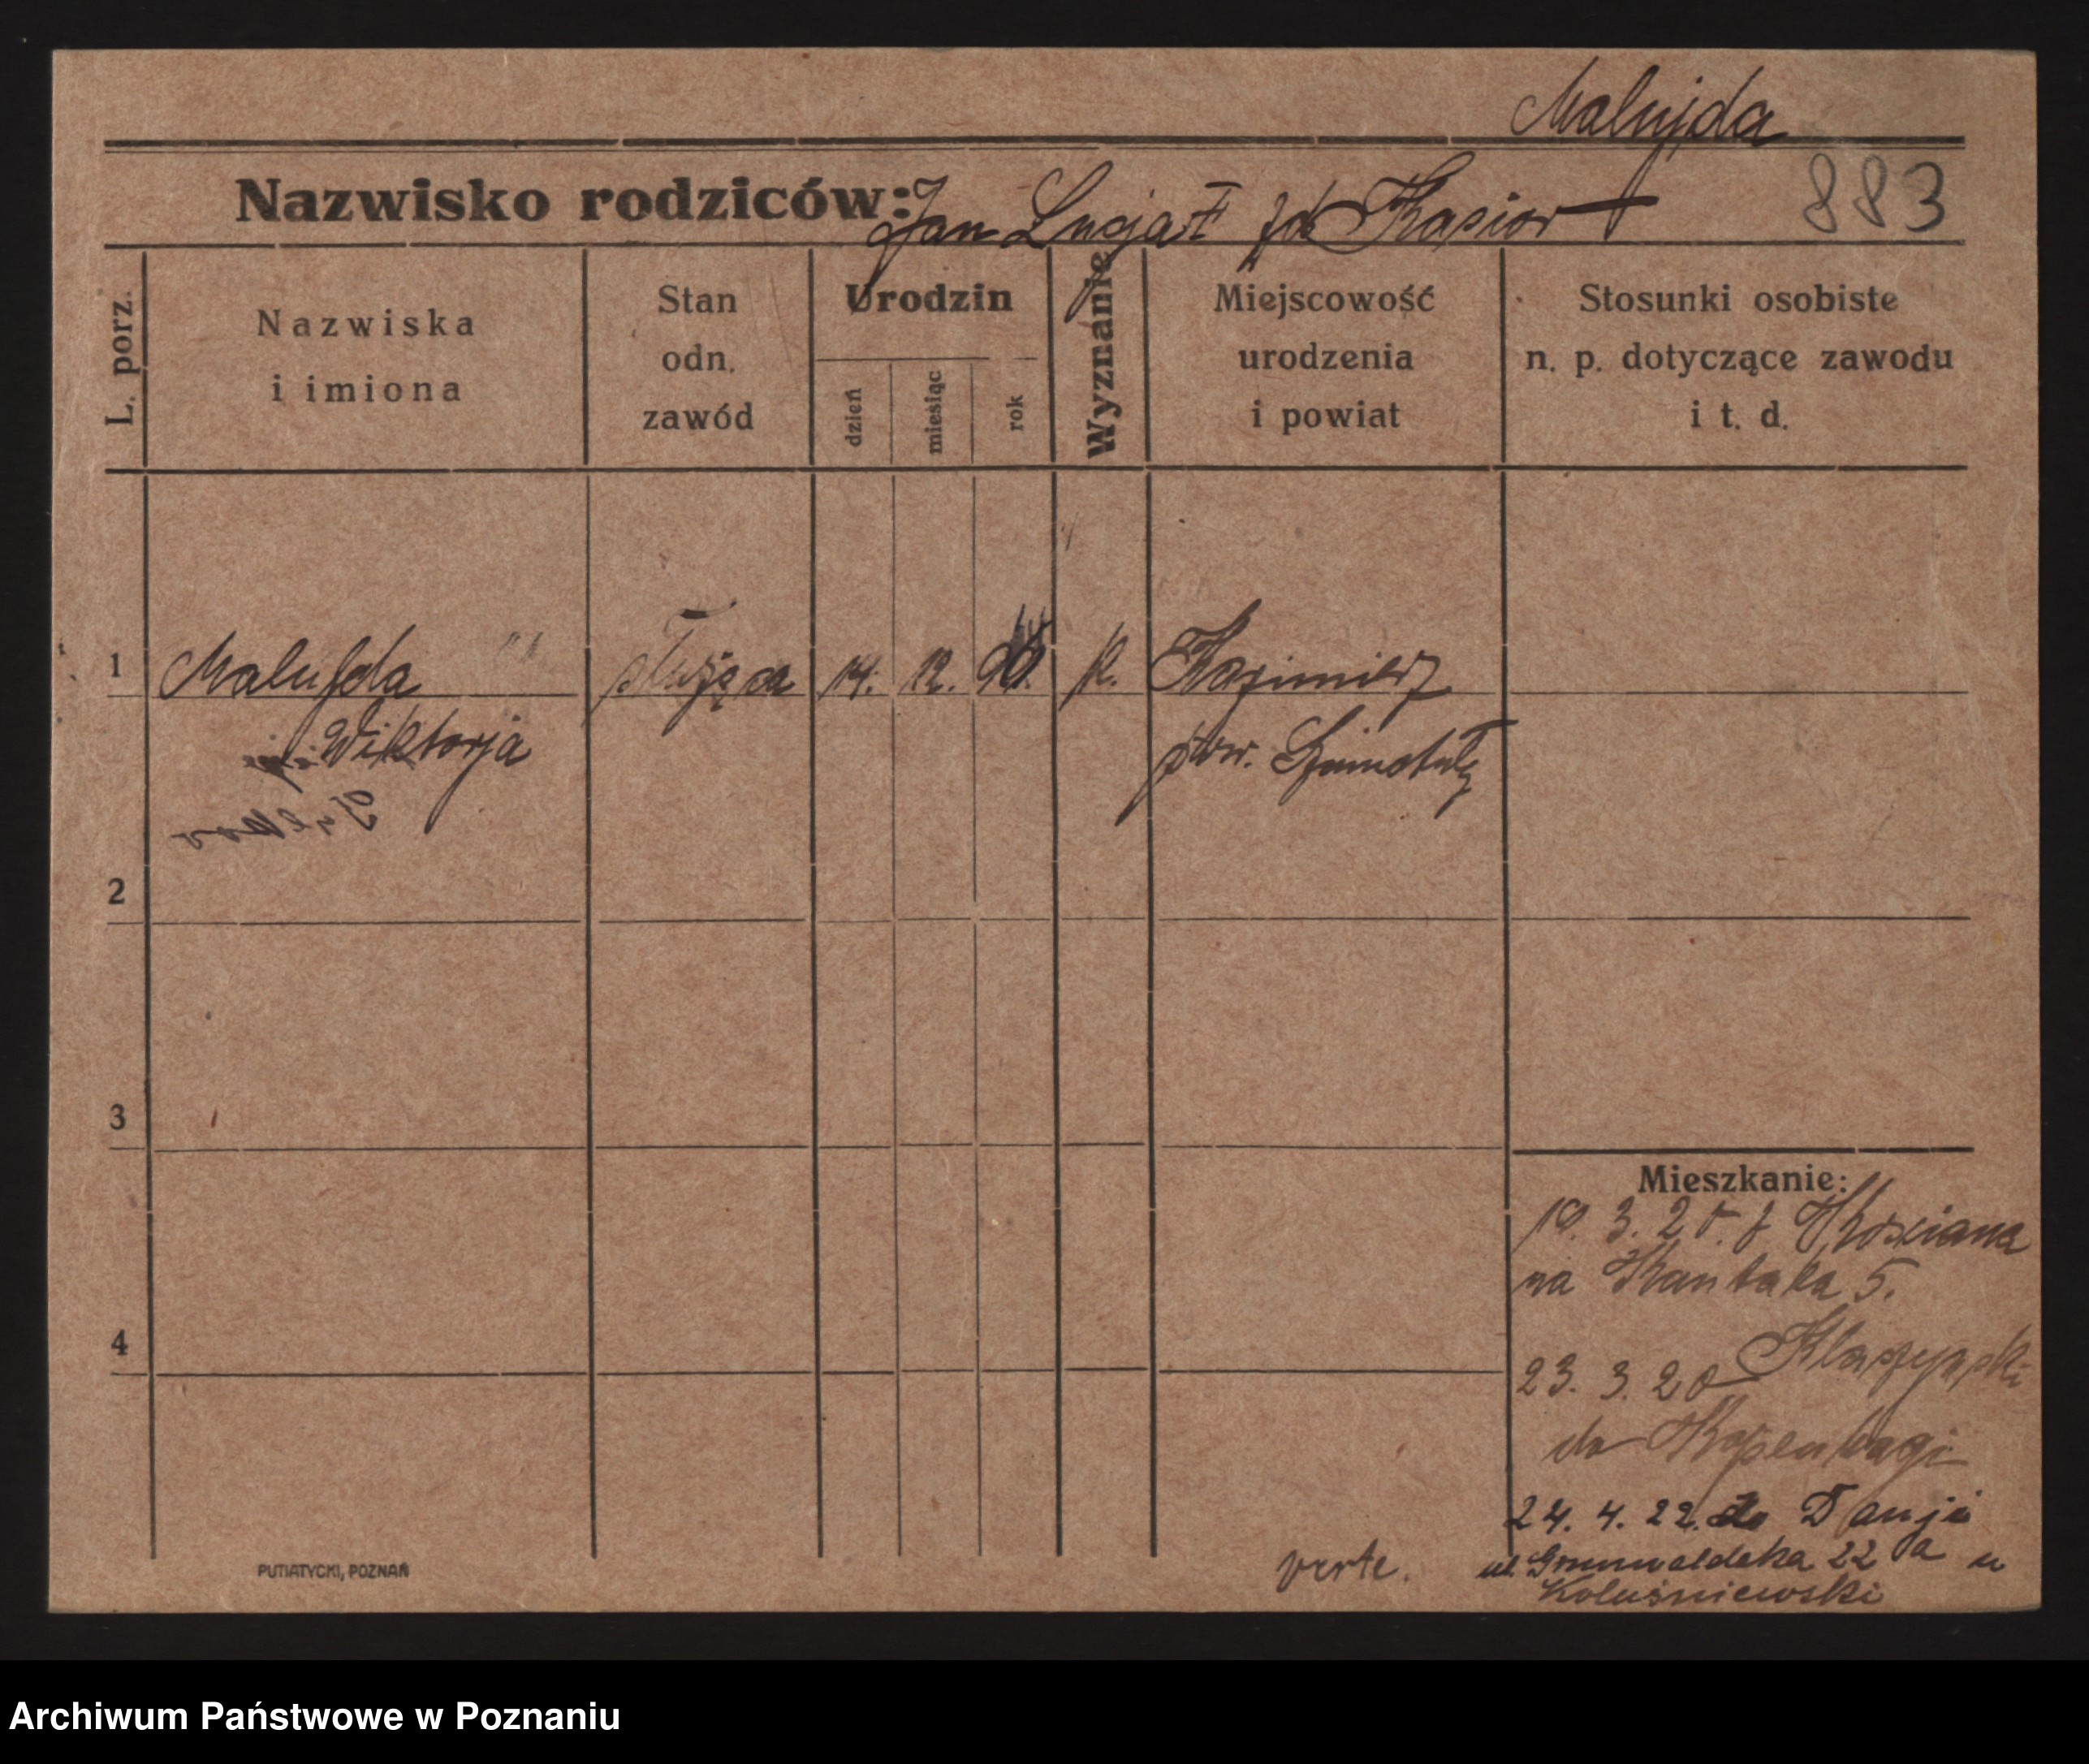 Malujda
Nazwisko rodziców: Jan Łucja zd Kasior
883
L. porz.
Nazwiska
i imiona
Stan
odn.
zawód
Urodzin
dzień
miesiąc
rok
Wyznanie
Miejscowość
urodzenia
i powiat
Stosunki osobiste
n. p. dotyczące zawodu
i t. d.
1 Malujda służąca 14. 12. K. Kazimierz
Wiktorja pow. Szamotuły
2
3
4
Mieszkanie:
10. 3. 20. z Kościana
na Kantaka 5.
23. 3. 20
do Kopenhagi
24. 4. 22. do Danji
ul. Grunwaldzka 22 a u
Koluśniewski
verte.
PUTIATYCKI, POZNAŃ
Archiwum Państwowe w Poznaniu